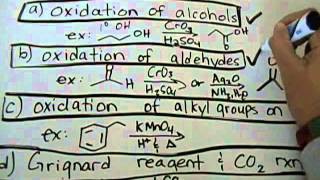 a) oxidation of alcohols
ex: OH OH CrO3 H2SO4 O OH
b) oxidation of aldehydes
ex: O H CrO3 H2SO4 or Ag2O NH3, H2O
c) oxidation of alkyl groups on
ex: KMnO4 H+ & Δ
d) Grignard reagent & CO2 rxn